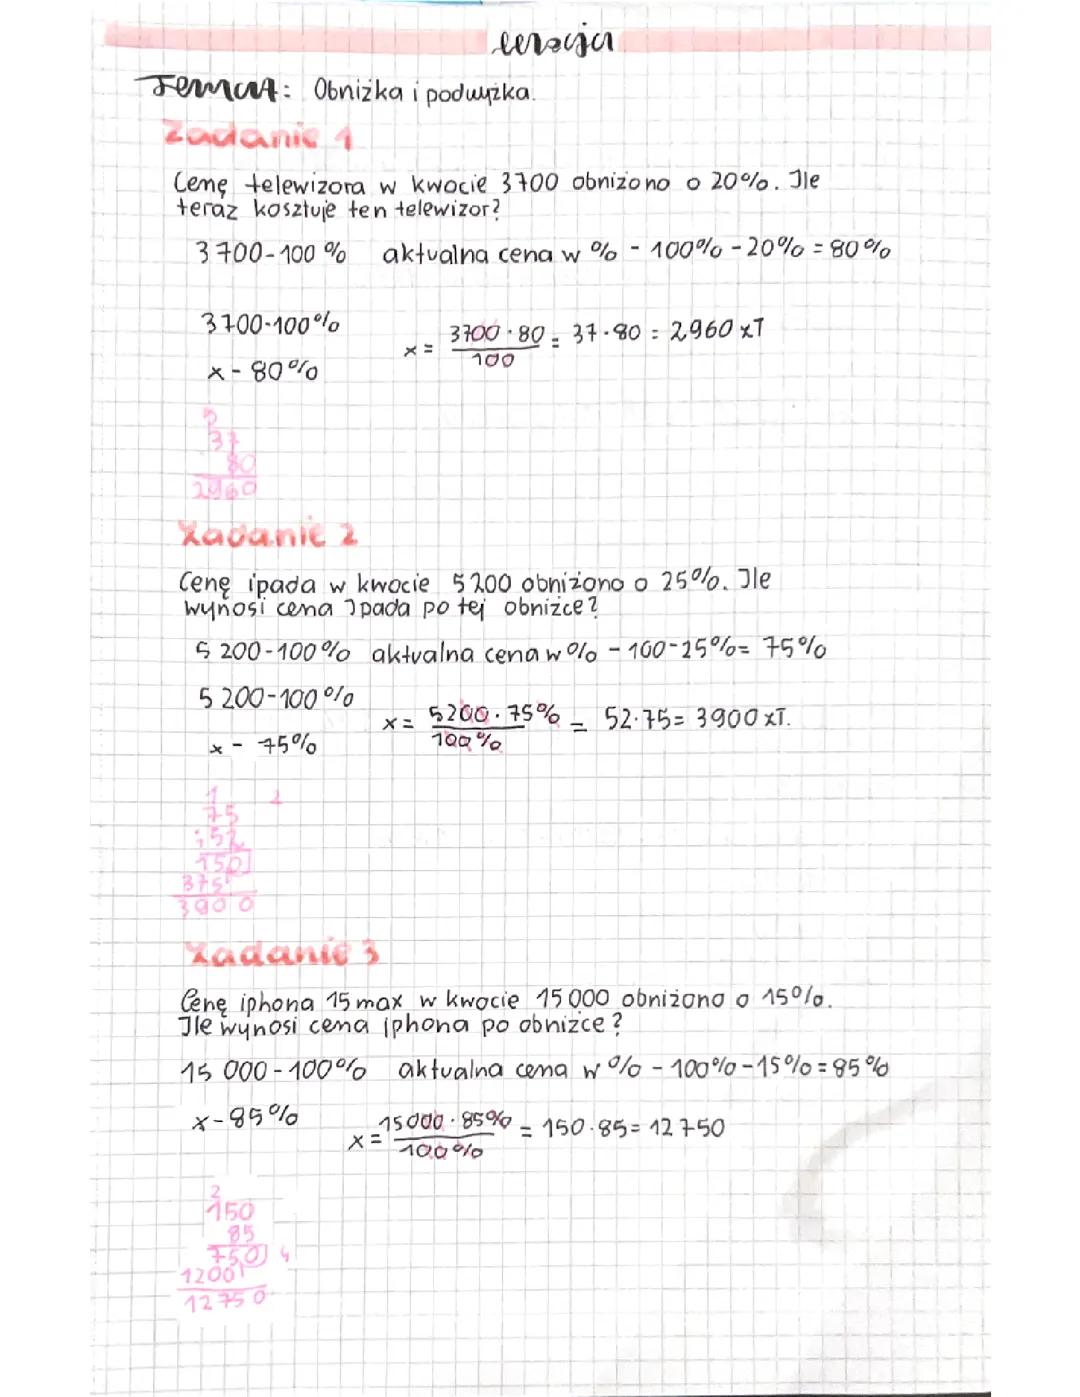 lekcja
Temat: Obniżka i podwyżka.
Zadanie 1
Cenę telewizora w kwocie 3700 obniżono o 20%. Ile
teraz kosztuje ten telewizor?
3700-100% aktualna cena w % - 100% - 20% = 80%
3700-100%
x = 3700 · 80 / 100 = 37 · 80 = 2960 zł
x - 80%
5
37
80
2960
Zadanie 2
Cenę ipada w kwocie 5200 obniżono o 25%. Ile
wynosi cena Ipada po tej obniżce?
5 200-100% aktualna cena w % - 100-25% = 75%
5 200-100%
x = 5200 · 75% / 100% = 52·75 = 3900 zł.
x - 75%
1 1
75
·52
150
375
3900
Zadanie 3
Cenę iphona 15 max w kwocie 15 000 obniżono o 15%.
Ile wynosi cena iphona po obniżce?
15 000-100% aktualna cena w % - 100%-15% = 85%
x-85%
x = 15000 · 85% / 100% = 150·85 = 12750
2
150
85
750 4
1200
12750